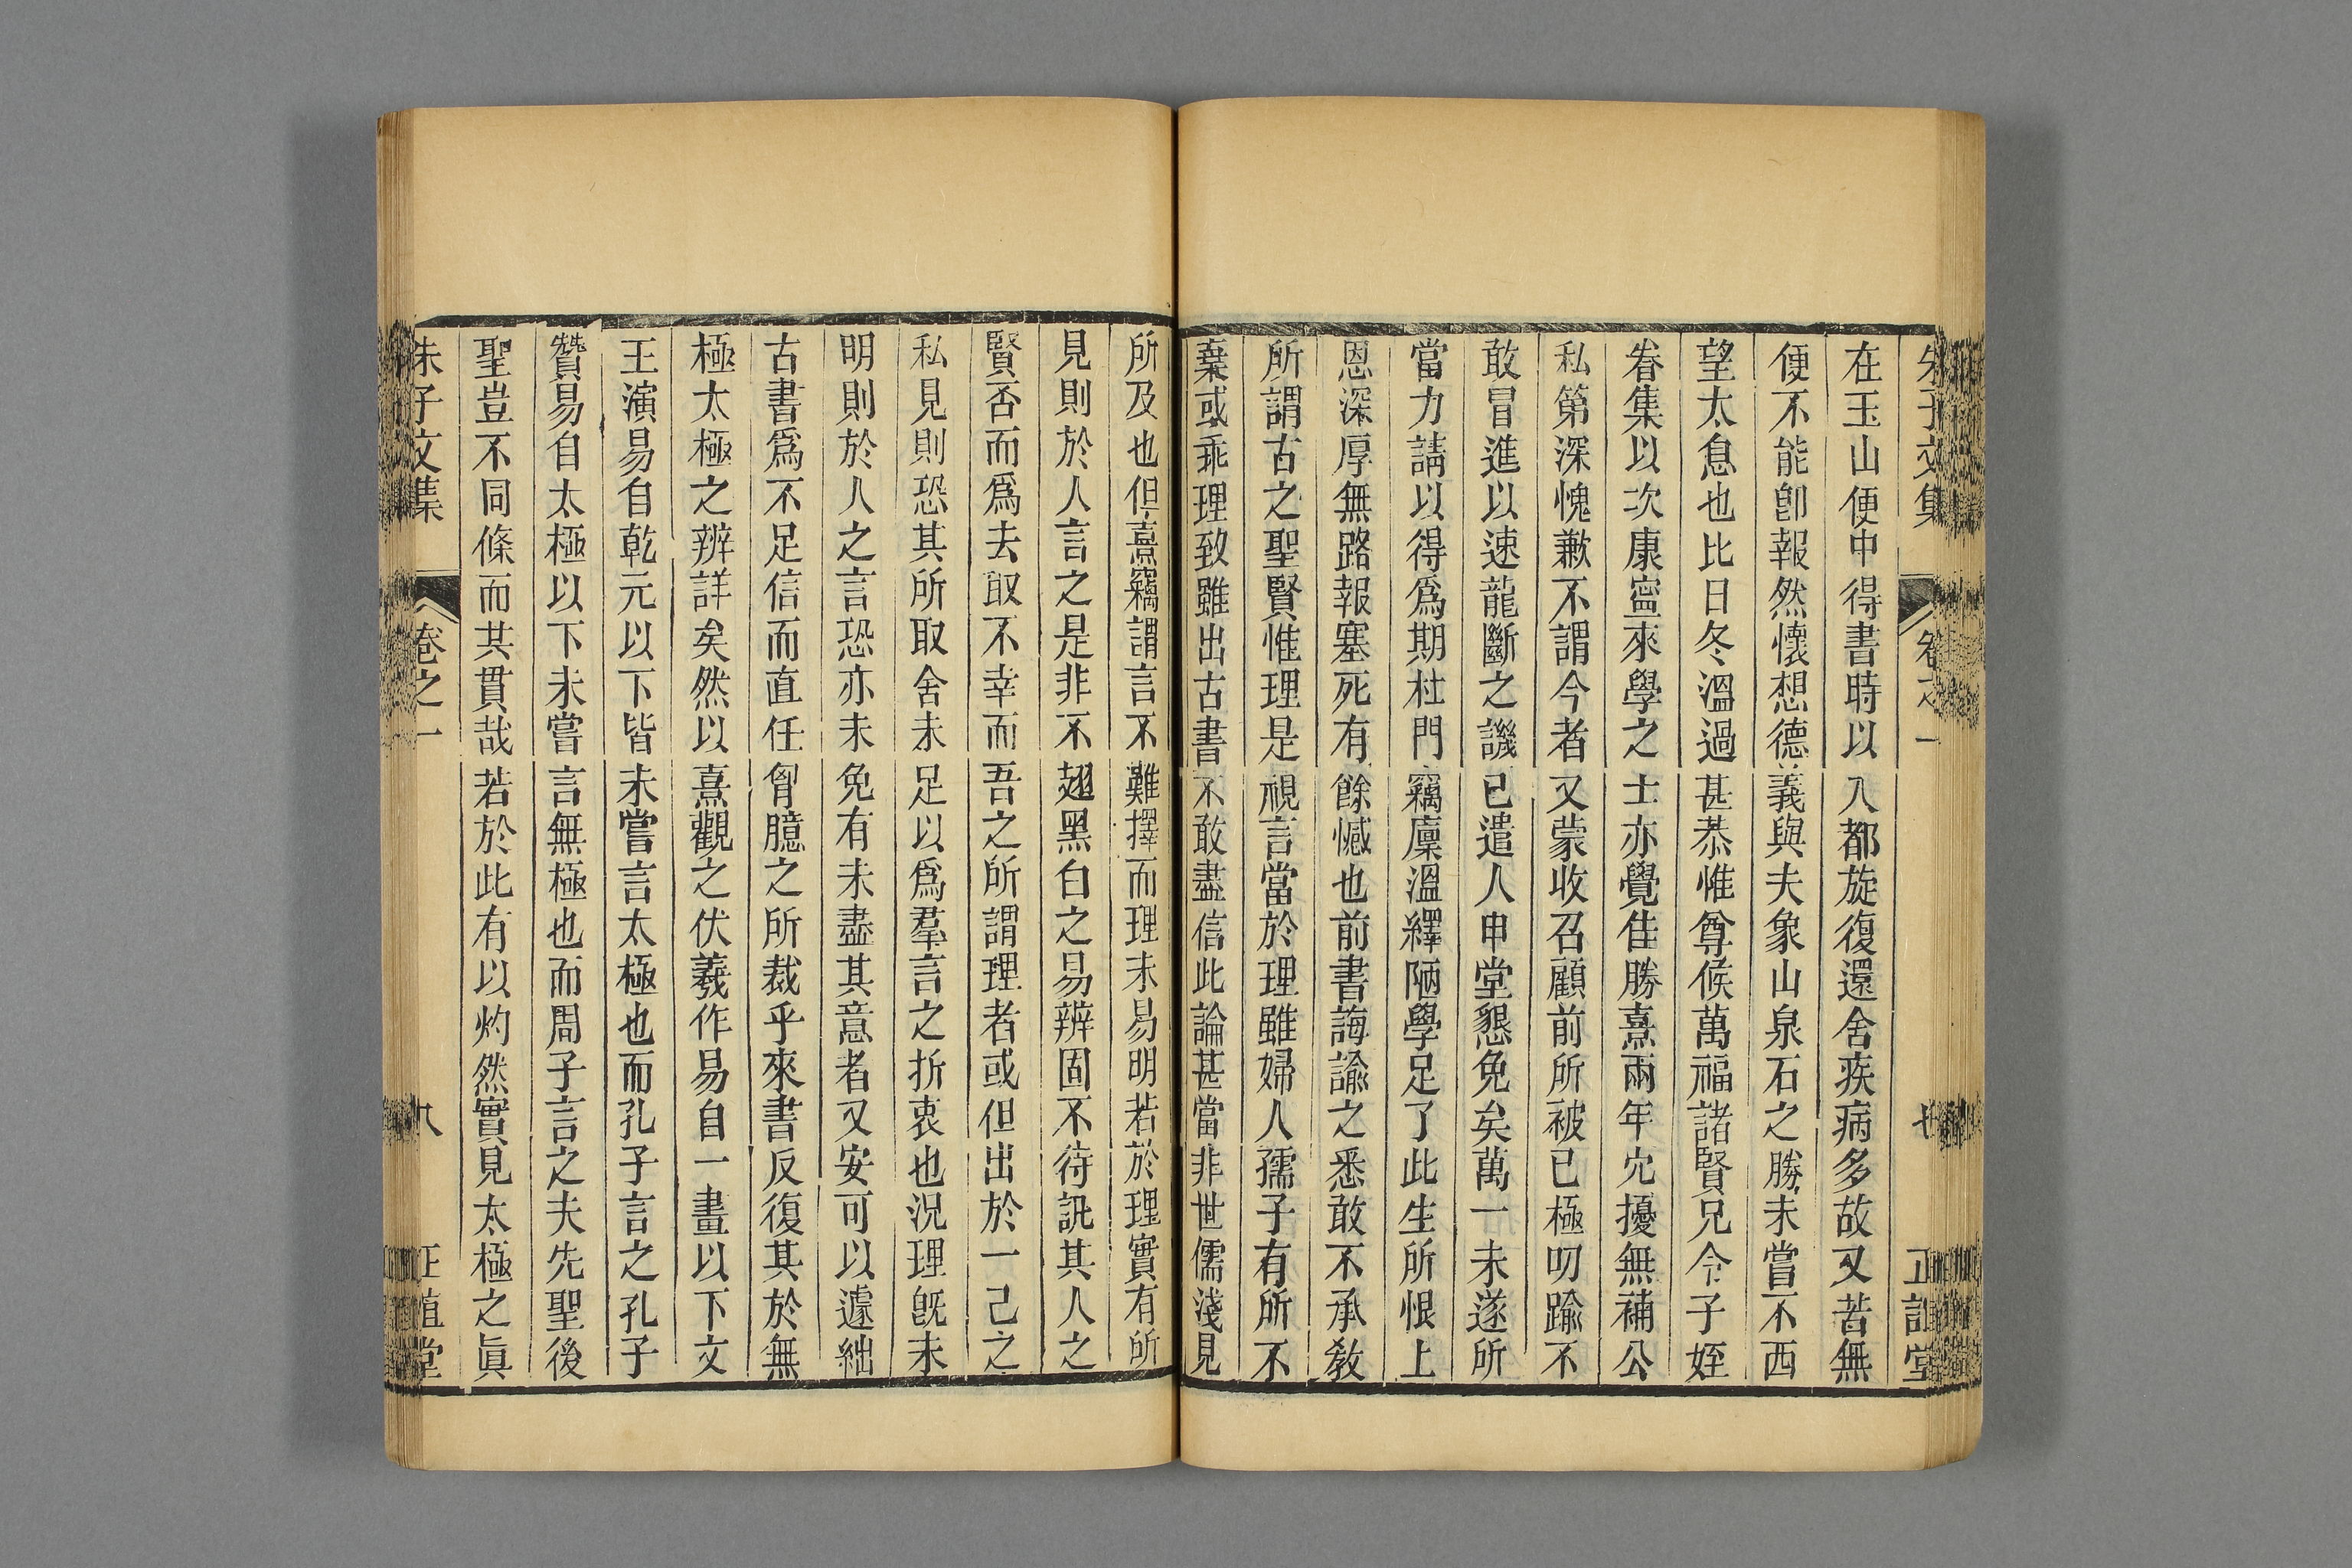 朱子文集 卷之一 七 正誼堂
在玉山便中得書時以入都旋復還舍疾病多故又苦無
便不能卽報然懷想德義與夫象山泉石之勝未嘗不西
望太息也比日冬溫過甚恭惟尊候萬福諸賢兄令子姪
眷集以次康寧來學之士亦覺佳勝熹兩年宂擾無補公
私第深愧歉不謂今者又蒙收召顧前所被已極叨踰不
敢冒進以速龍斷之譏已遣人申堂懇免矣萬一未遂所
當力請以得爲期杜門竊廩溫繹陋學足了此生所恨上
恩深厚無路報塞死有餘憾也前書誨諭之悉敢不承教
所謂古之聖賢惟理是視言當於理雖婦人孺子有所不
棄或乖理致雖出古書不敢盡信此論甚當非世儒淺見
所及也但熹竊謂言不難擇而理未易明若於理實有所
見則於人言之是非不翅黑白之易辨固不待訊其人之
賢否而爲去取不幸而吾之所謂理者或但出於一己之
私見則恐其所取舍未足以爲羣言之折衷也況理旣未
明則於人之言恐亦未免有未盡其意者又安可以遽絀
古書爲不足信而直任胷臆之所裁乎來書反復其於無
極太極之辨詳矣然以熹觀之伏羲作易自一畫以下文
王演易自乾元以下皆未嘗言太極也而孔子言之孔子
贊易自太極以下未嘗言無極也而周子言之夫先聖後
聖豈不同條而共貫哉若於此有以灼然實見太極之眞
朱子文集 卷之一 八 正誼堂